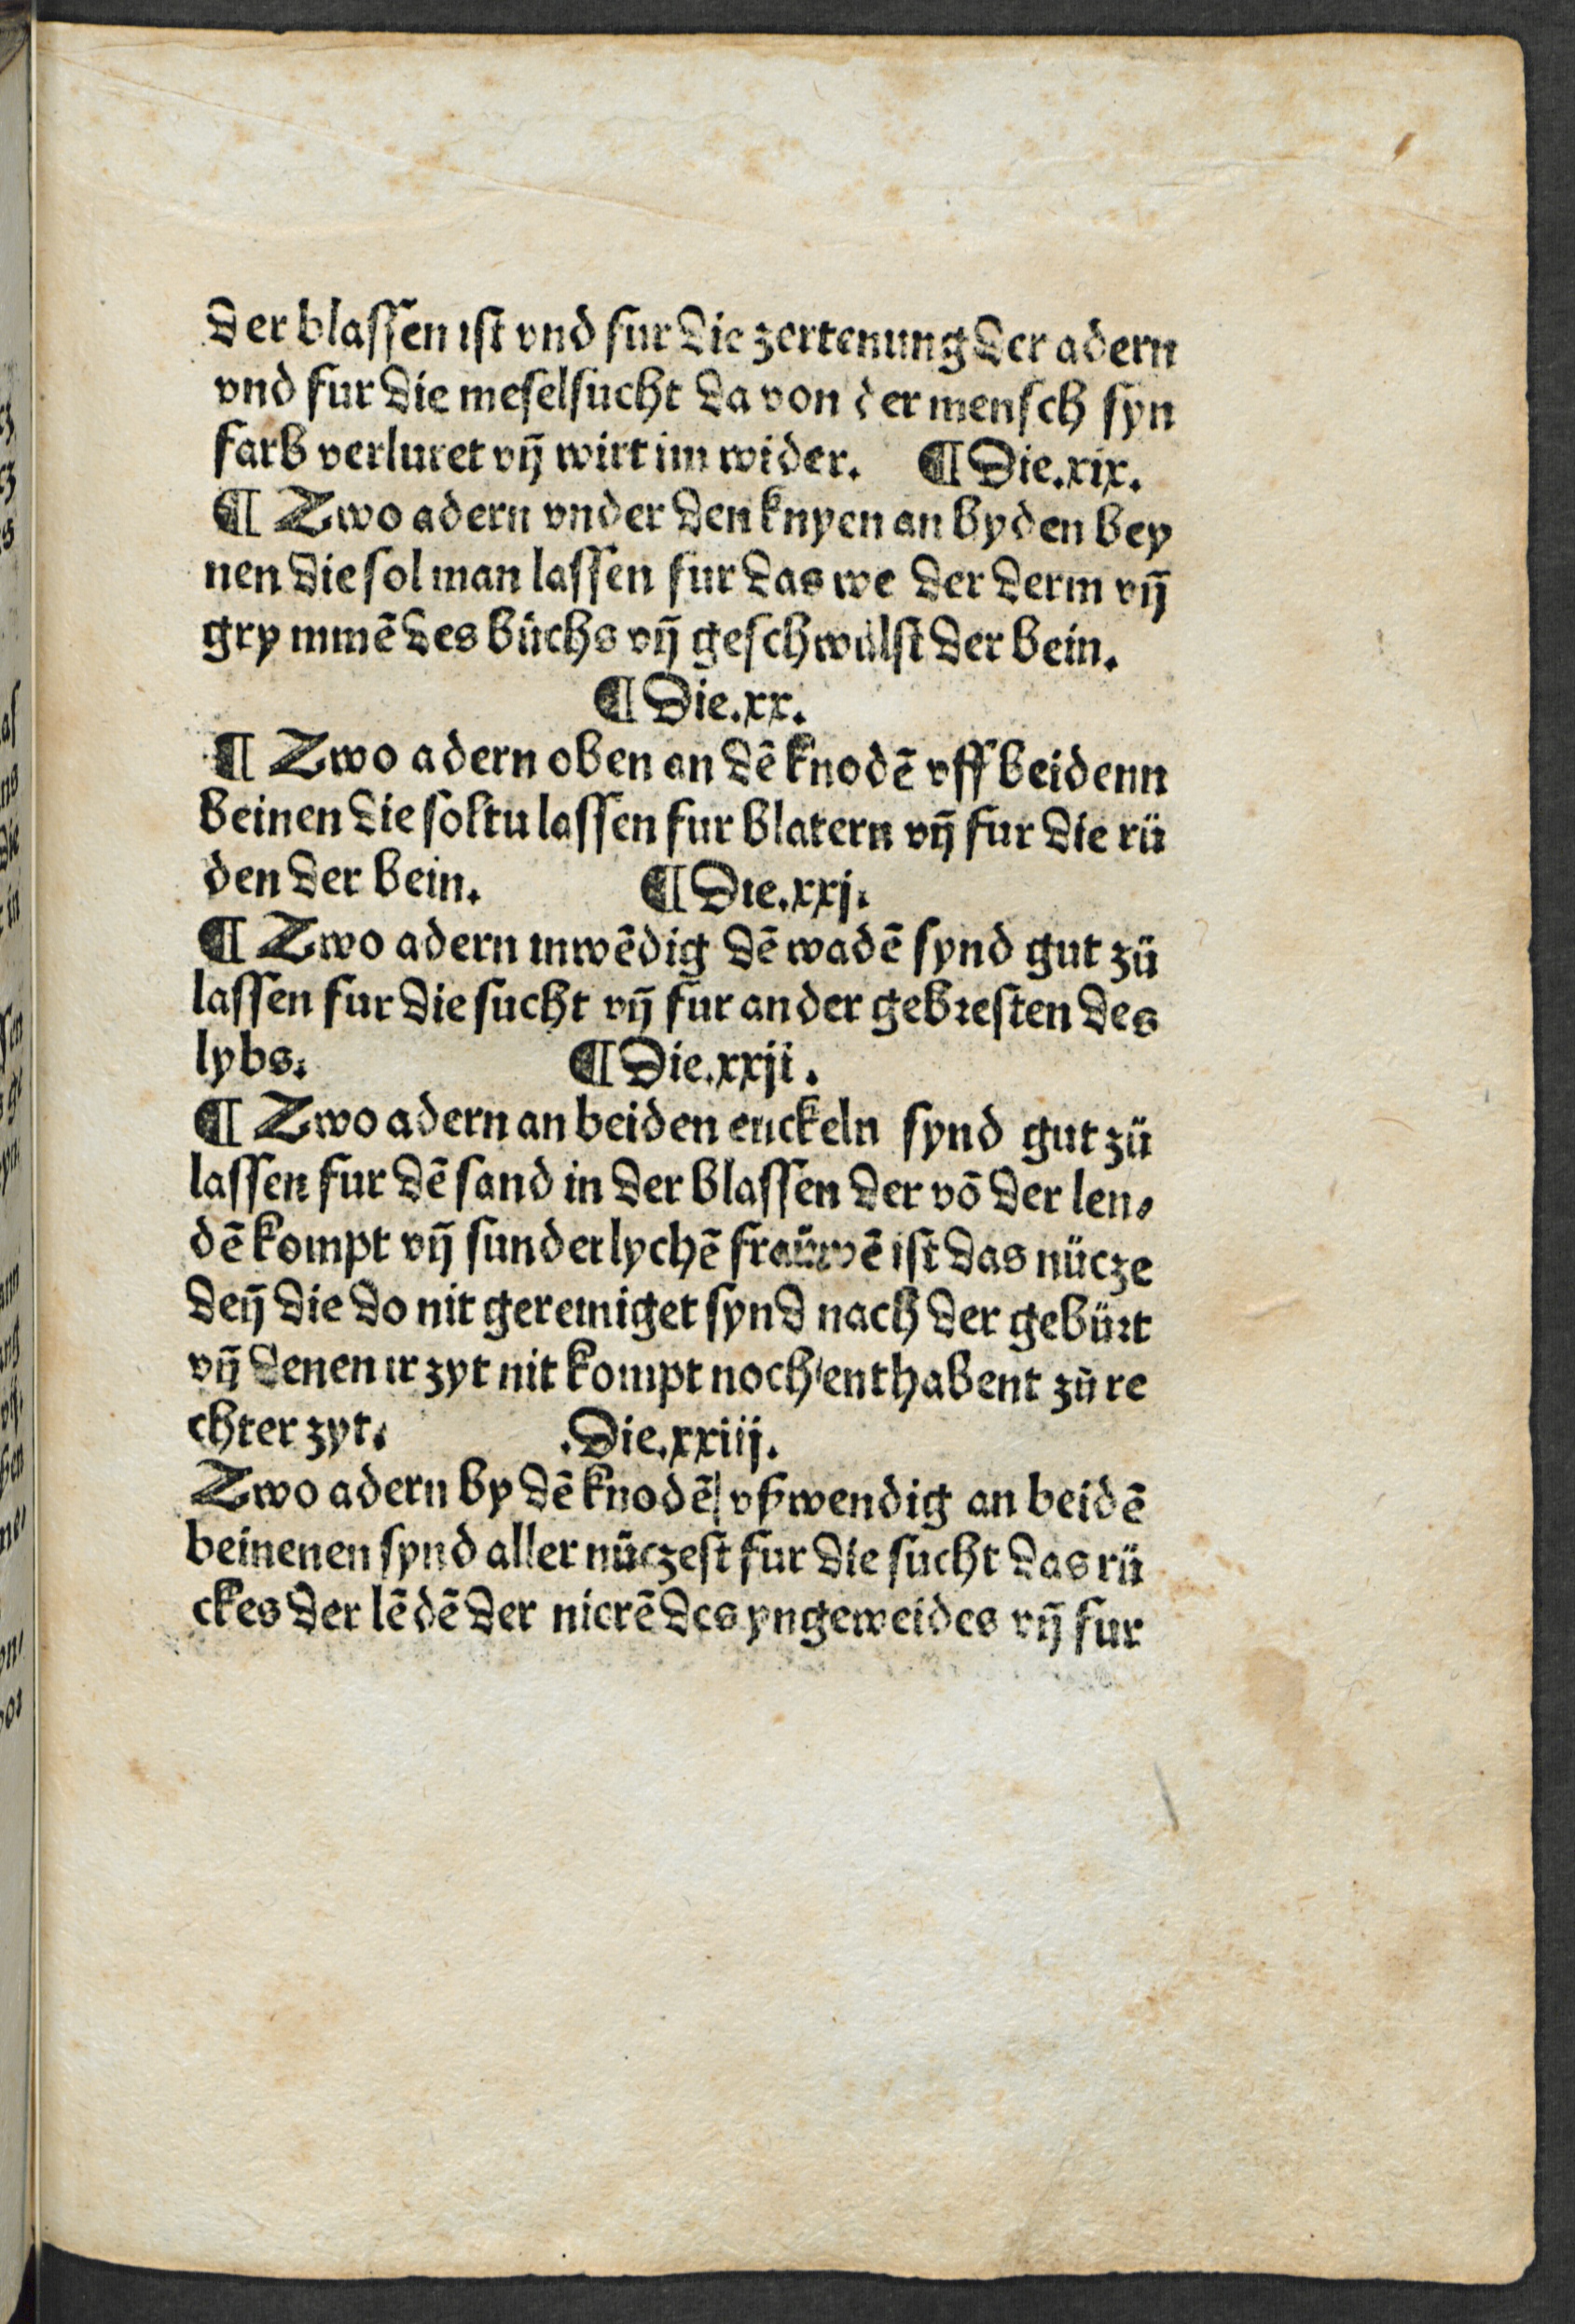 der blassen ist vnd fur die zertenung der adern
vnd fur die meselsucht da von der mensch syn
farb verluret vn̄ wirt im wider. ¶ Die.xix.
¶ Zwo adern vnder den knyen an byden bey
nen die sol man lassen fur das we der derm vn̄
gry mmē des büchs vn̄ geschwülst der bein.
¶ Die.xx.
¶ Zwo adern oben an dē knodē vff beidenn
beinen die soltu lassen fur blatern vn̄ fur die rü
den der bein. ¶ Die.xxj.
¶ Zwo adern inwēdig dē wadē synd gut zü
lassen fur die sucht vn̄ fur ander gebresten des
lybs. ¶ Die.xxji.
¶ Zwo adern an beiden enckeln synd gut zü
lassen fur dē sand in der blassen der vō der len⸗
dē kompt vn̄ sunderlychē fraüwē ist das nücze
den̄ die do nit gereiniget synd nach der gebürt
vn̄ denen ir zyt nit kompt noch enthabent zü re
chter zyt. .Die.xxiij.
Zwo adern by dē knodē vßwendig an beidē
beinenen synd aller nüczest fur die sucht das rü
ckes der lēdē der nierē des yngeweides vn̄ fur